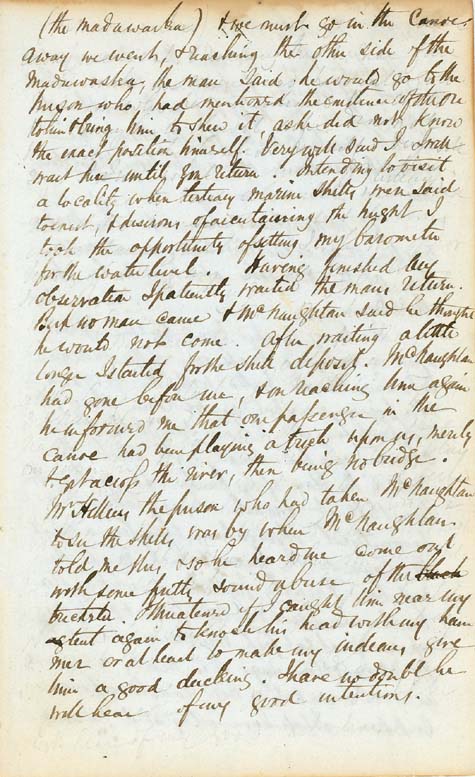 (the madawaska) & we must go in the Canoe,
away we went, & reaching the other side of the
Madawaska, the man said he would go to the
person who had mentioned the existence of the ore
to him & bring him to shew it, as he did not know
the exact position himself. Very well said I I will
wait here until you return. Intending to visit
a locality where tertiary marine shells were said
to exist, & desirous of ascertaining the height I
took the opportunity of setting my barometer
for the water level. Having finished my
observation I patiently waited the mans return.
But no man came & McNaughtan said he thought
he would not come. After waiting a little
longer I started for the shell deposit. McNaughtan
had gone before me, & on reaching him again
he informed me that our passenger in the
canoe had been playing a trick upon us, merely
to get across the river, there being no bridge.
Mr the person who had taken McNaughtan
to see the shells was by when McNaughtan
told me this, & so he heard me come out
with some pretty sound abuse of the black
I threatened if I caught him near my
tent again to knock his head with my ham
mer or at least to make my indians give
him a good ducking. I have no doubt he
will hear of my good intentions.